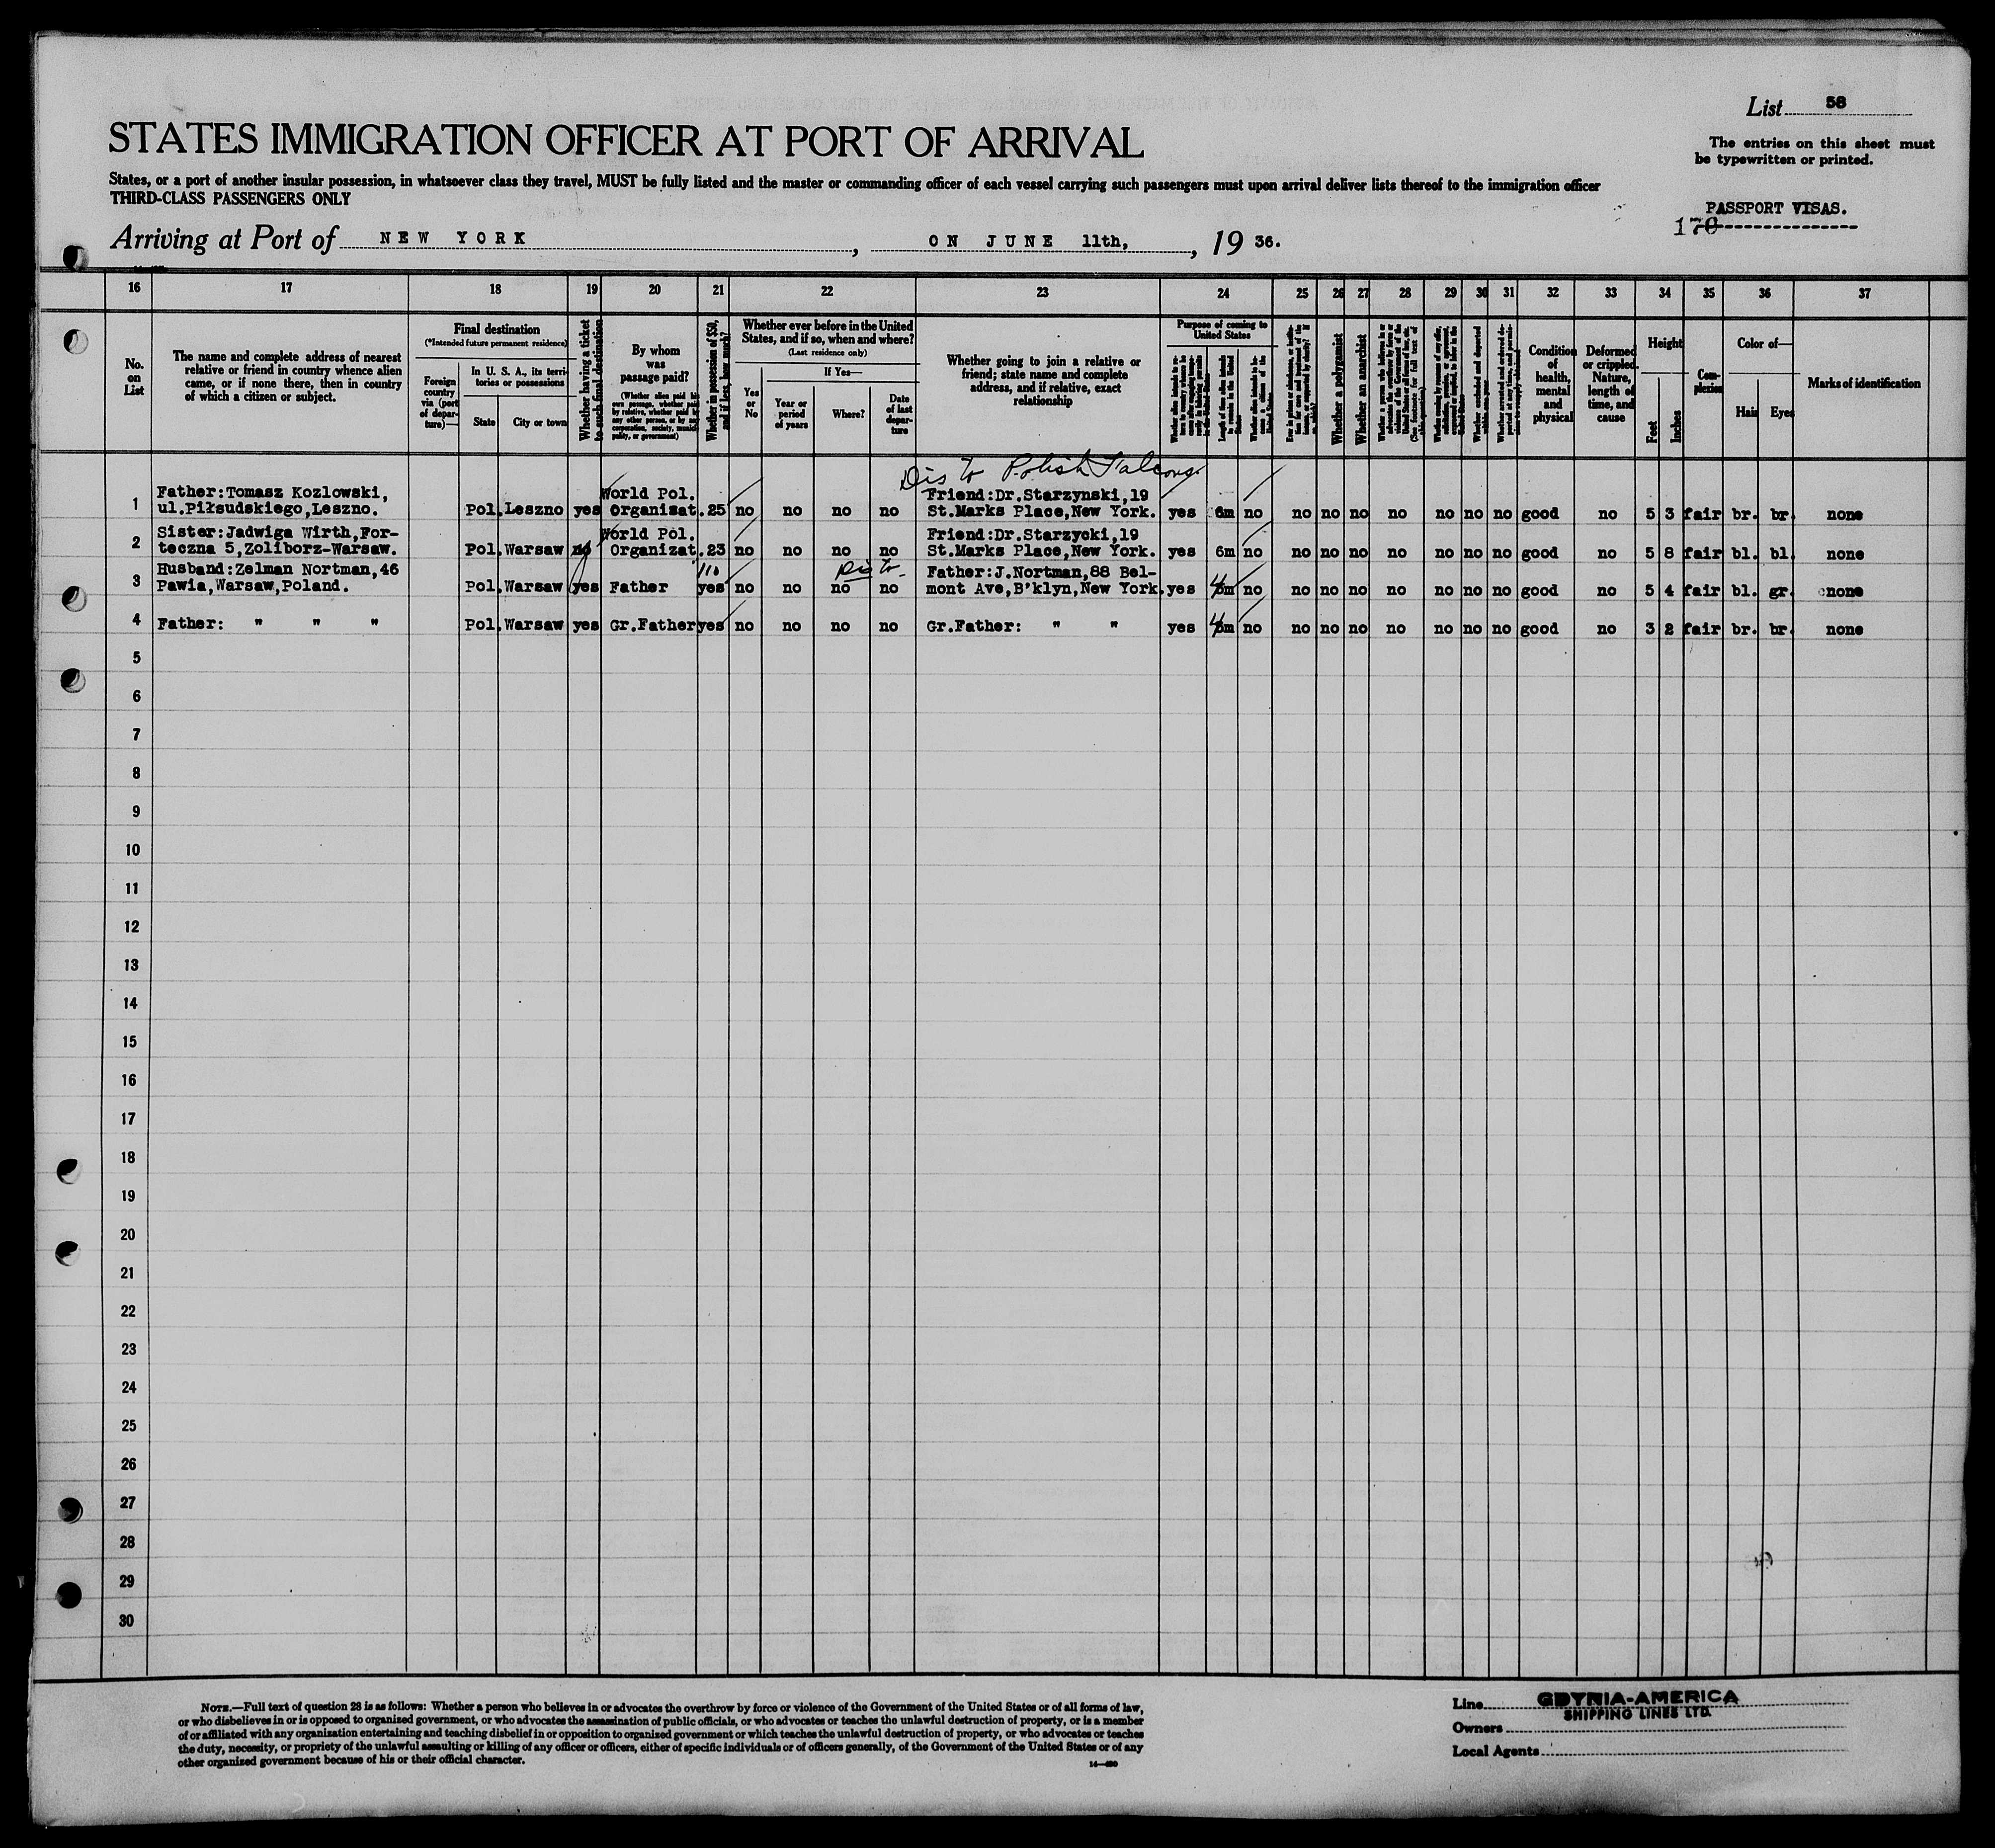 List 58
The entries on this sheet must
be typewritten or printed.
STATES IMMIGRATION OFFICER AT PORT OF ARRIVAL
States, or a port of another insular possession, in whatsoever class they travel, MUST be fully listed and the master or commanding officer of each vessel carrying such passengers must upon arrival deliver lists thereof to the immigration officer
THIRD-CLASS PASSENGERS ONLY
PASSPORT VISAS.
170
Arriving at Port of NEW YORK, ON JUNE 11th, 19 36.
16 17 18 19 20 21 22 23 24 25 26 27 28 29 30 31 32 33 34 35 36 37
No.
on
List
The name and complete address of nearest
relative or friend in country whence alien
came, or if none there, then in country
of which a citizen or subject.
Final destination
(*Intended future permanent residence)
Foreign
country
via (port
of depar-
ture)—
In U. S. A., its terri-
tories or possessions
State
City or town
Whether having a ticket
to such final destination
By whom
was
passage paid?
(Whether alien paid his
own passage, whether paid
by relative, whether paid by
any other person, or by any
corporation, society, munici-
pality, or government)
Whether in possession of $50,
and if less, how much?
Whether ever before in the United
States, and if so, when and where?
(Last residence only)
Yes
or
No
If Yes—
Year or
period
of years
Where?
Date
of last
depar-
ture
Whether going to join a relative or
friend; state name and complete
address, and if relative, exact
relationship
Purpose of coming to
United States
Whether a polygamist
Whether an anarchist
Condition
of
health,
mental
and
physical
Deformed
or crippled.
Nature,
length of
time, and
cause
Height
Feet
Inches
Com-
plexion
Color of—
Hair
Eyes
Marks of identification
Dis to Polish Falcons
1 Father:Tomasz Kozlowski, World Pol. Friend:Dr.Starzynski,19
ul.Piłsudskiego,Leszno. Pol. Leszno yes Organisat. 25 no no no no St.Marks Place,New York. yes 6m no no no no no no no no good no 5 3 fair br. br. none
2 Sister:Jadwiga Wirth,For- World Pol. Friend:Dr.Starzycki,19
teczna 5,Zoliborz-Warsaw. Pol. Warsaw no Organizat. 23 no no no no St.Marks Place,New York. yes 6m no no no no no no no no good no 5 8 fair bl. bl. none
110 Dis to
3 Husband:Zelman Nortman,46 Father:J.Nortman,88 Bel-
Pawia,Warsaw,Poland. Pol. Warsaw yes Father yes no no no no mont Ave,B'klyn,New York. yes 4 m no no no no no no no no good no 5 4 fair bl. gr. none
4 Father: " " " Pol. Warsaw yes Gr.Father yes no no no no Gr.Father: " " yes 4 m no no no no no no no no good no 3 2 fair br. br. none
5
6
7
8
9
10
11
12
13
14
15
16
17
18
19
20
21
22
23
24
25
26
27
28
29
30
NOTE.—Full text of question 28 is as follows: Whether a person who believes in or advocates the overthrow by force or violence of the Government of the United States or of all forms of law,
or who disbelieves in or is opposed to organized government, or who advocates the assassination of public officials, or who advocates or teaches the unlawful destruction of property, or is a member
of or affiliated with any organization entertaining and teaching disbelief in or opposition to organized government or which teaches the unlawful destruction of property, or who advocates or teaches
the duty, necessity, or propriety of the unlawful assaulting or killing of any officer or officers, either of specific individuals or of officers generally, of the Government of the United States or of any
other organized government because of his or their official character.
Line GDYNIA-AMERICA
SHIPPING LINES LTD.
Owners
Local Agents